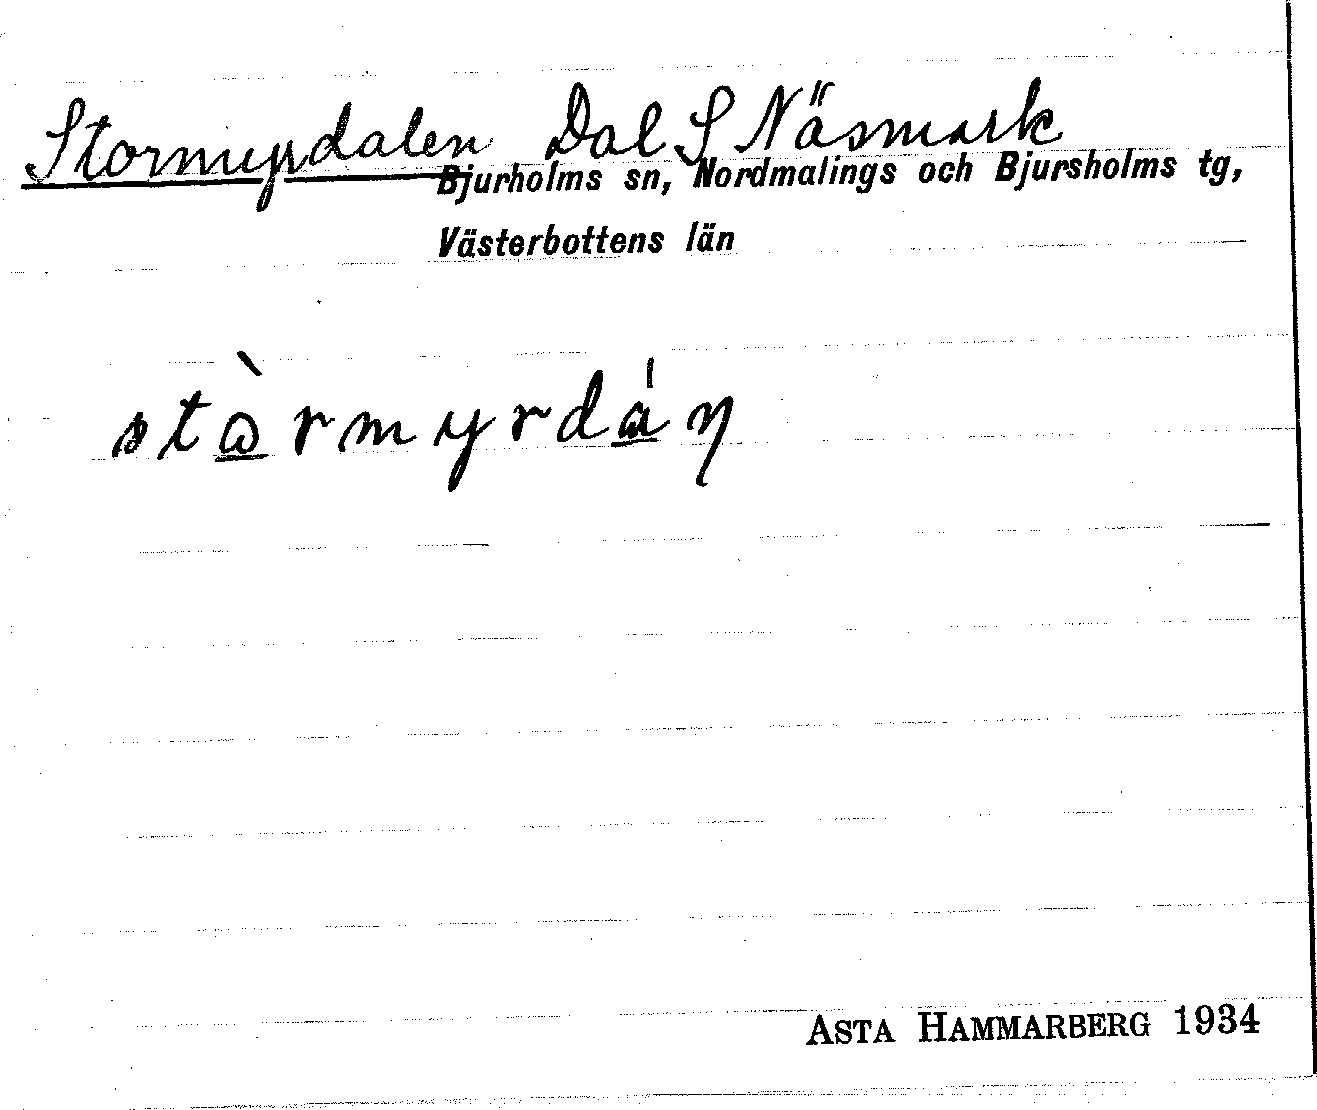 Stormyrdalen Dal S Näsmark
Bjurholms sn, Nordmalings och Bjursholms tg,
Västerbottens län
stà̲rmyrdá̲ŋ
ASTA HAMMARBERG 1934